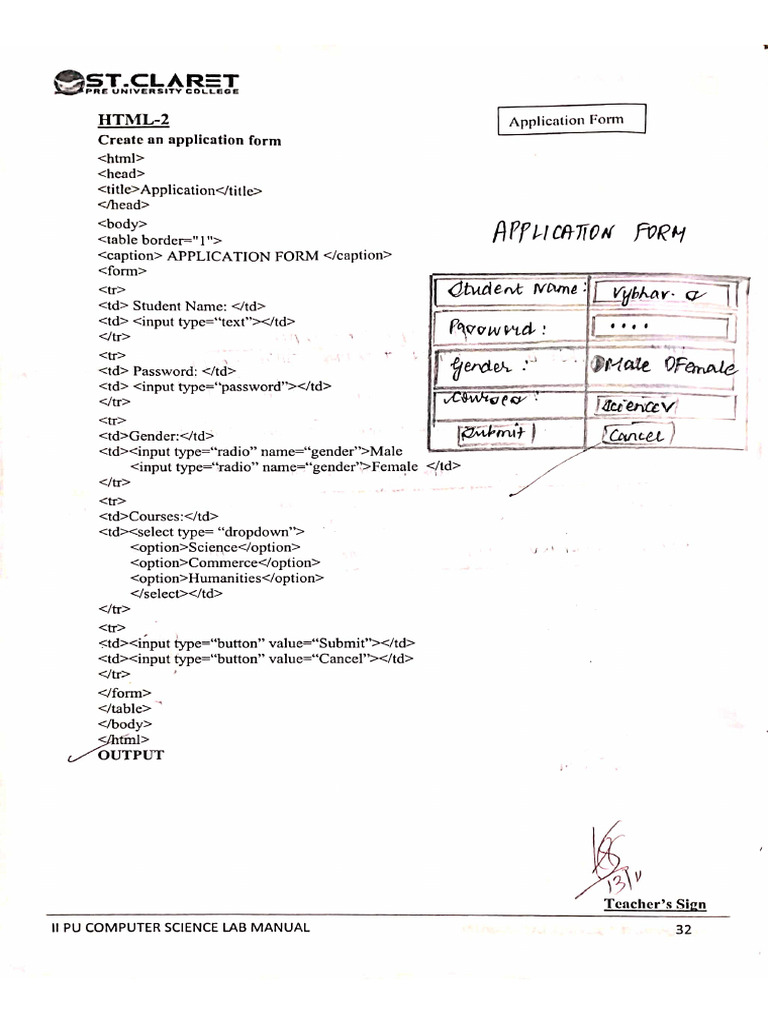 ST.CLARET
PRE UNIVERSITY COLLEGE
HTML-2
Application Form
Create an application form
<html>
<head>
<title>Application</title>
</head>
<body>
<table border="1">
<caption> APPLICATION FORM </caption>
<form>
<tr>
<td> Student Name: </td>
<td> <input type=“text”></td>
</tr>
<tr>
<td> Password: </td>
<td> <input type=“password”></td>
</tr>
<tr>
<td>Gender:</td>
<td><input type=“radio” name=“gender”>Male
<input type=“radio” name=“gender”>Female </td>
</tr>
<tr>
<td>Courses:</td>
<td><select type= “dropdown”>
<option>Science</option>
<option>Commerce</option>
<option>Humanities</option>
</select></td>
</tr>
<tr>
<td><input type=“button” value=“Submit”></td>
<td><input type=“button” value=“Cancel”></td>
</tr>
</form>
</table>
</body>
</html>
OUTPUT
APPLICATION FORM
Student Name: Vybhav.
Password: ....
Gender: Male Female
Courses: Science
Submit Cancel
13/11
Teacher's Sign
II PU COMPUTER SCIENCE LAB MANUAL 32